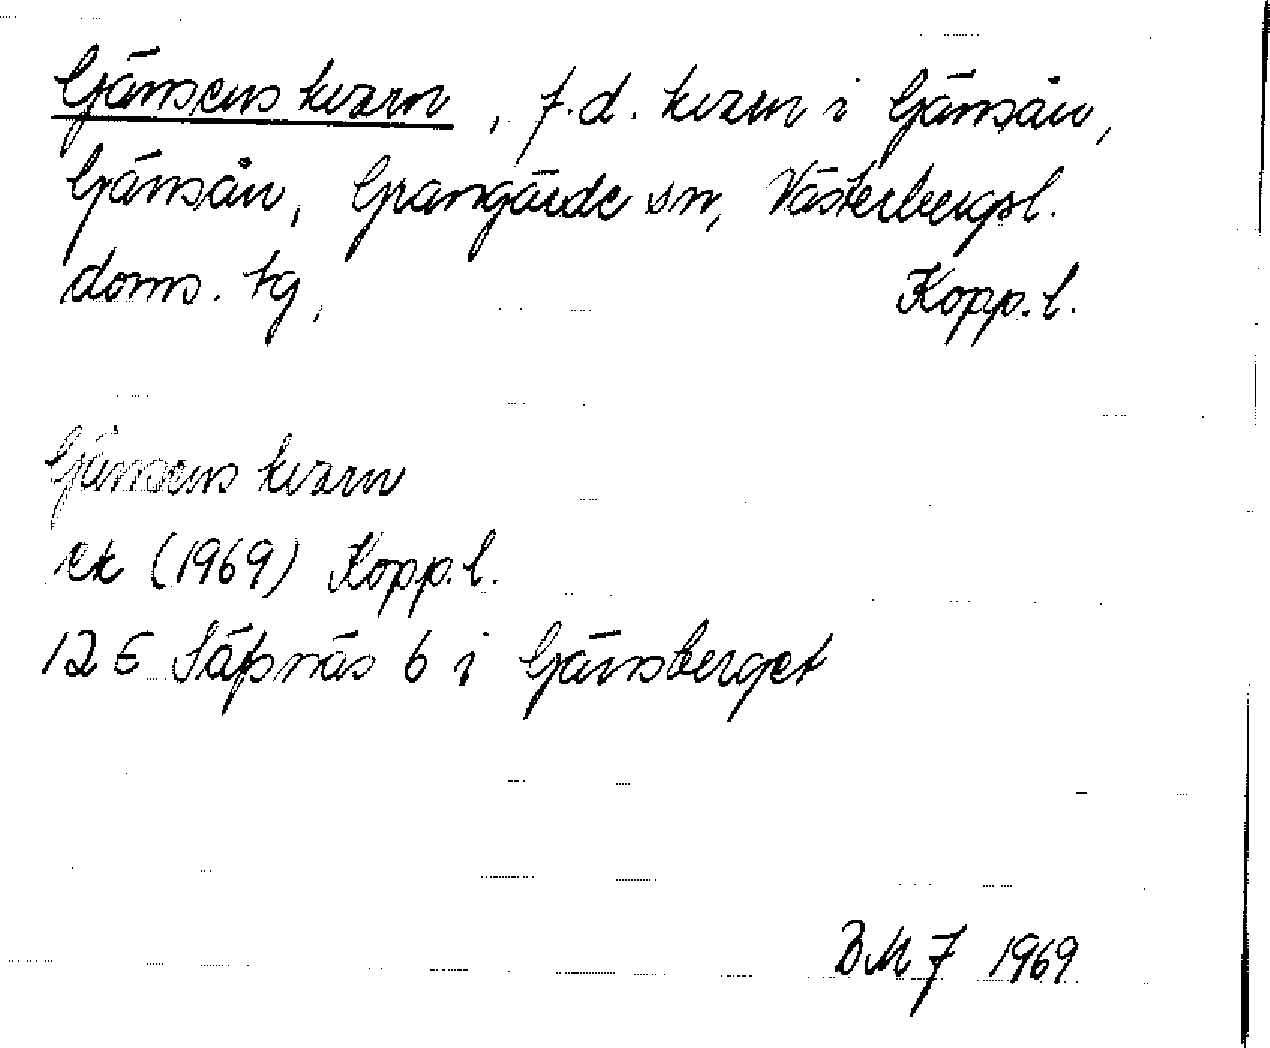 Gänsens kvarn, f.d. kvarn i Gänsån,
Gänsån, Grangärde sn, Västerbergsl.
doms. tg, Kopp. l.
Gänsens kvarn
ek (1969) Kopp. l.
12 E Säfsnäs 6 i Gänsberget
BM7 1969